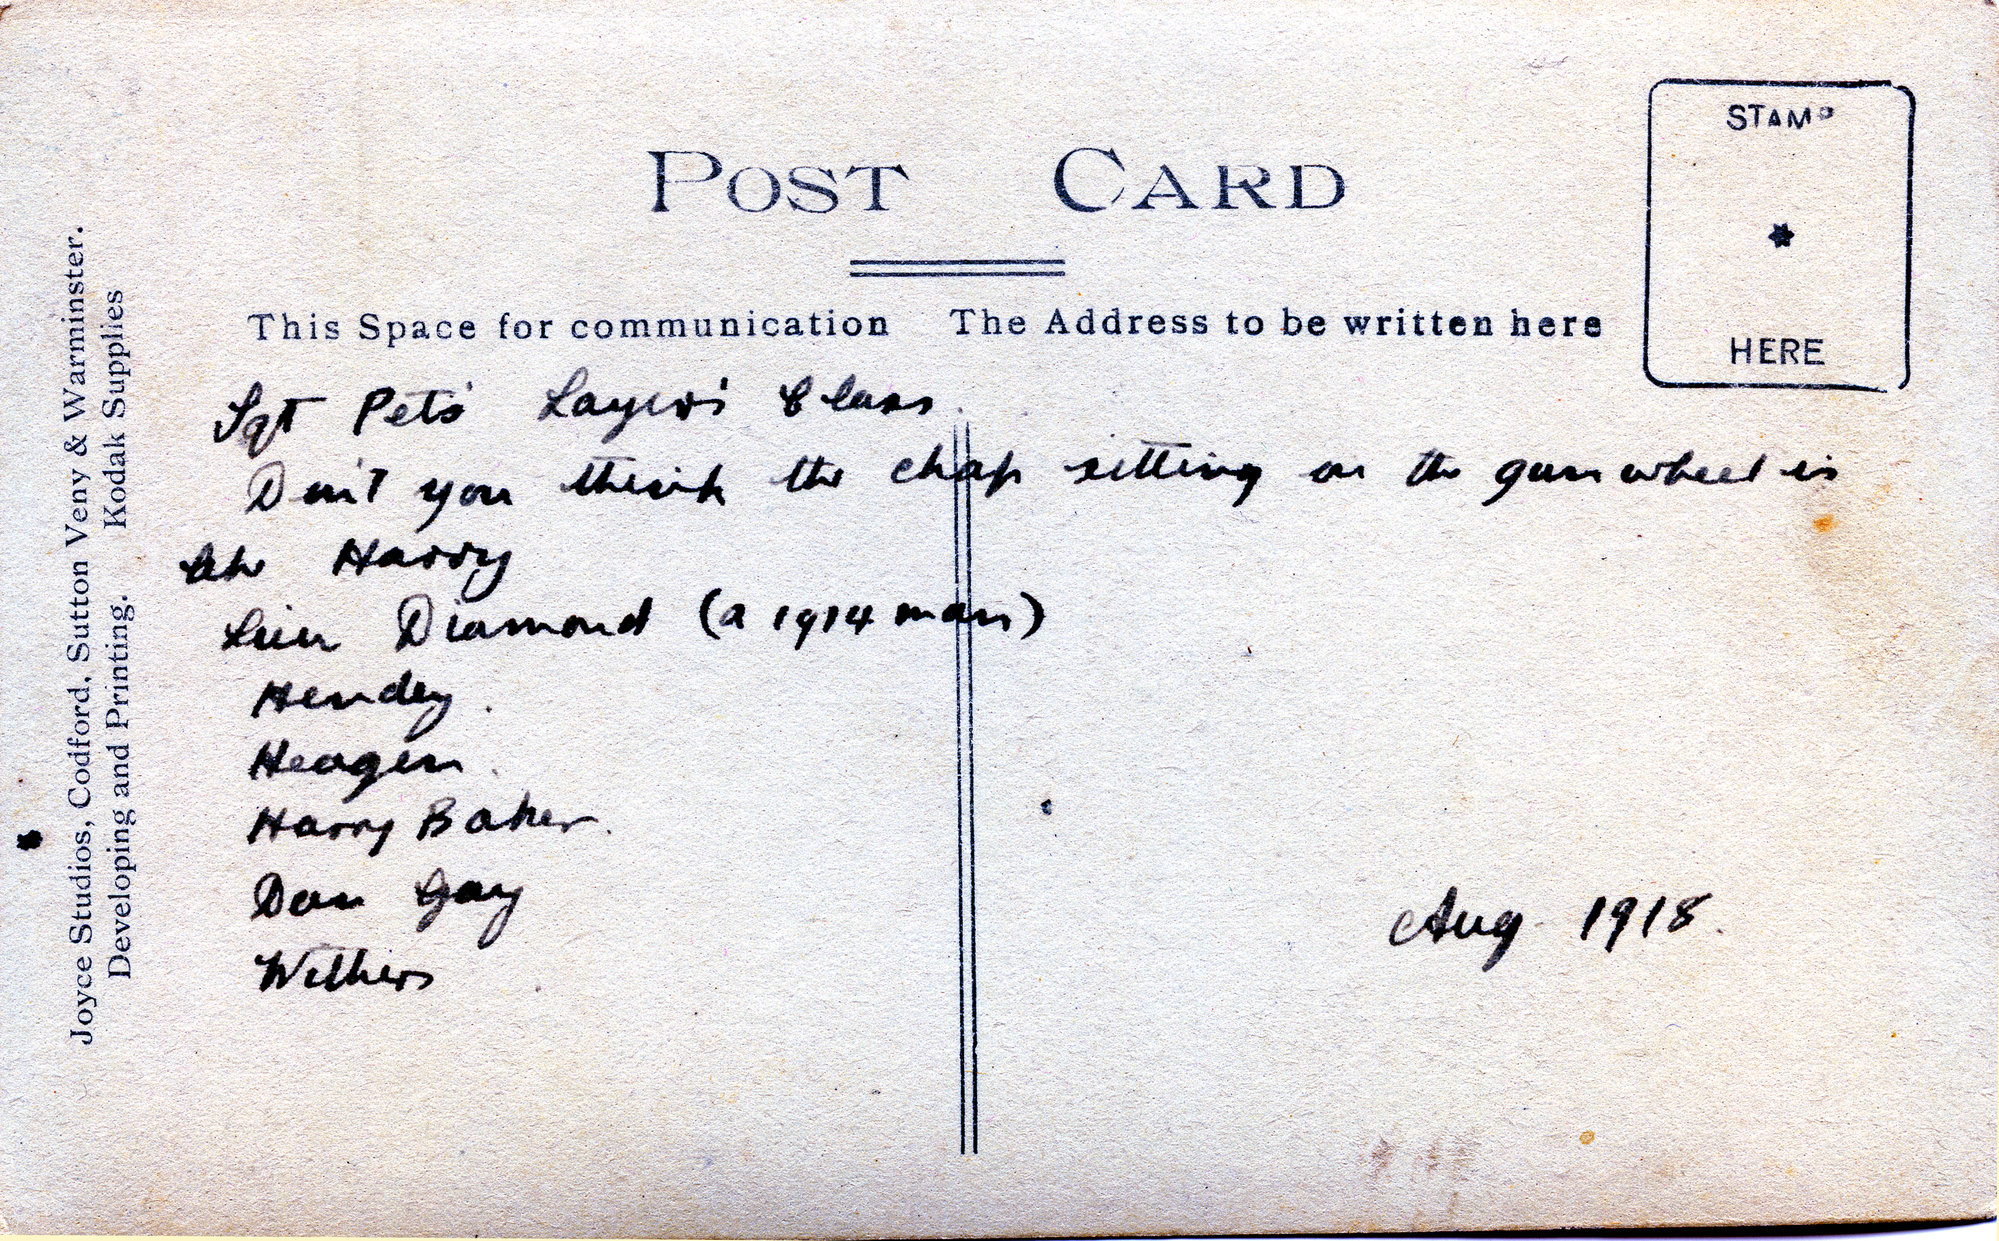 POST CARD
STAMP
HERE
This Space for communication
The Address to be written here
Sgt Pets' Layer's Class.
Don't you think the chap sitting on the gun wheel is
like Harry
Diamond (a 1914 man)
Hendey.
Heagen.
Harry Baker.
Dan Gay
Withers
Aug 1918.
Joyce Studios, Codford, Sutton Veny & Warminster.
Developing and Printing. Kodak Supplies